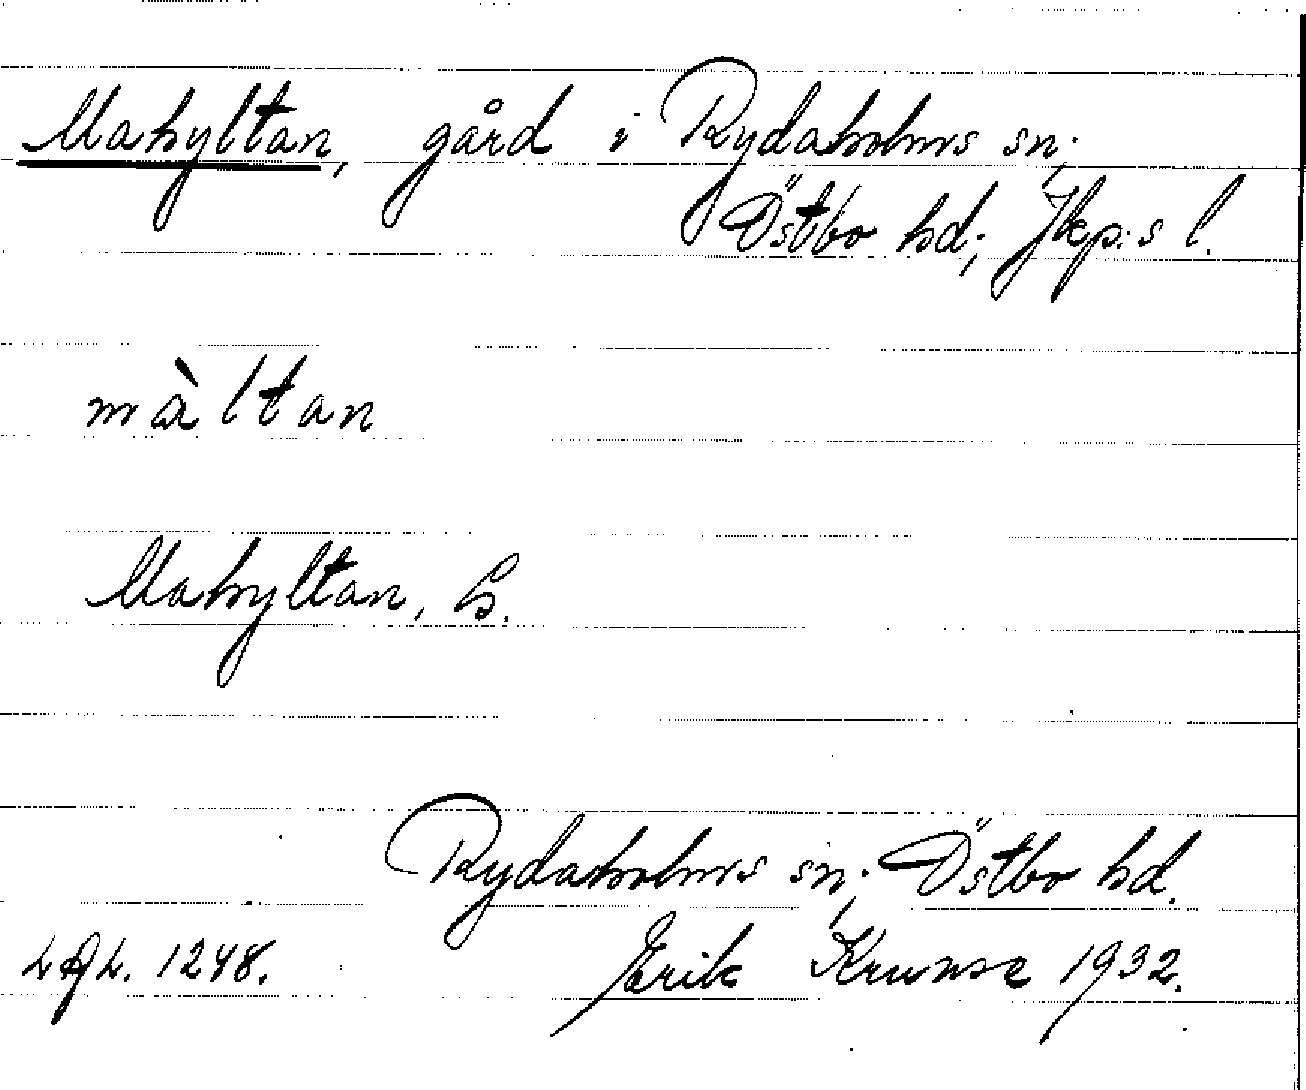 Mahyltan, gård i Rydaholms sn;
Östbo hd; Jkp:s l.
màltan
Mahyltan, G.
Rydaholms sn; Östbo hd.
1248. Erik Krunse 1932.